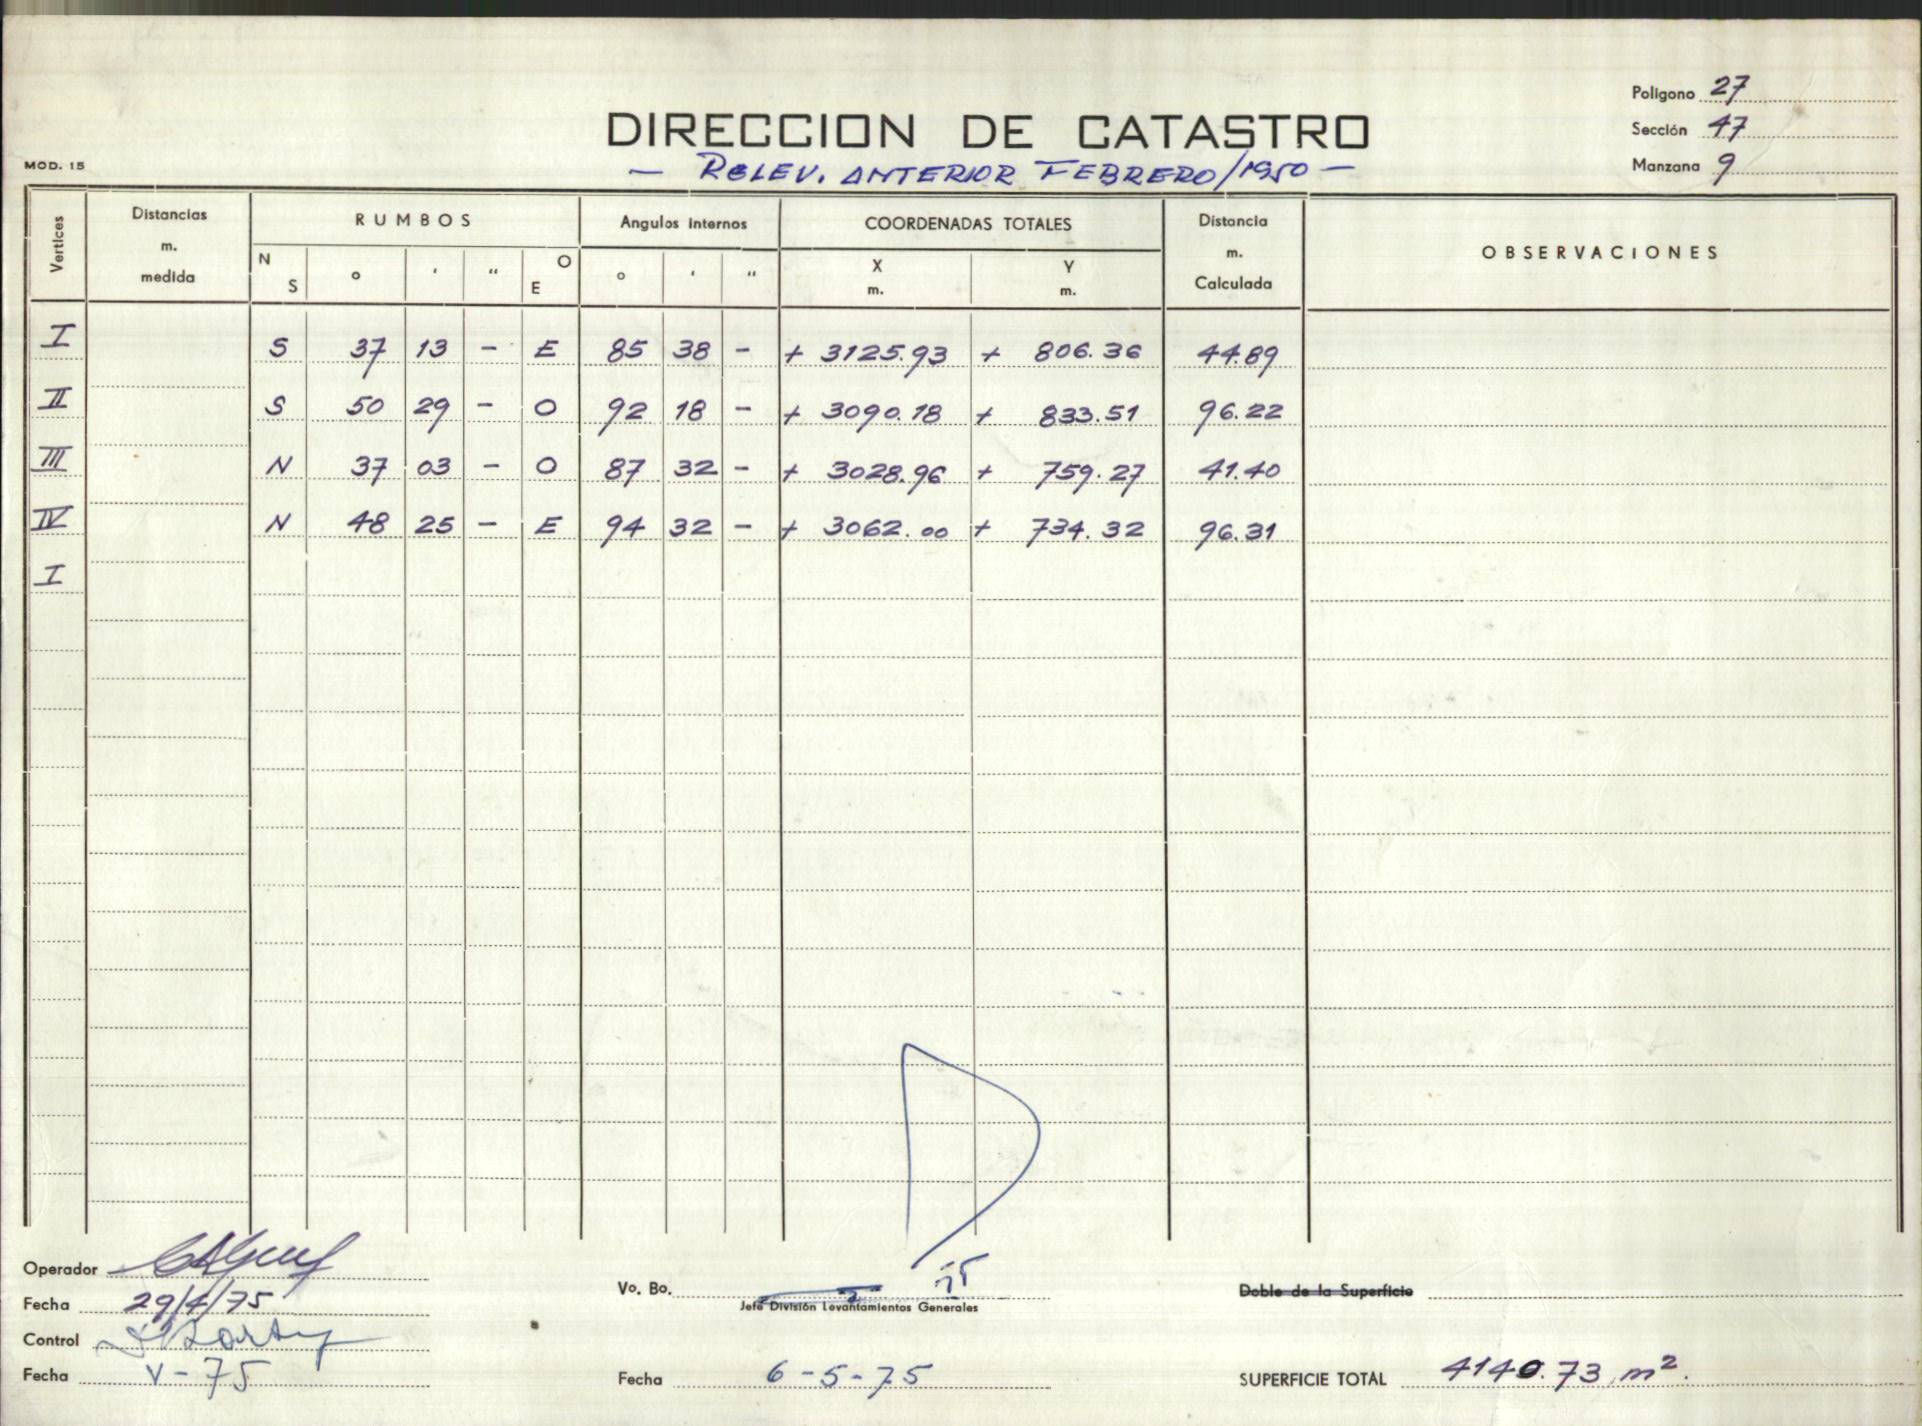 Polígono 27
DIRECCION DE CATASTRO
Sección 47
MOD. 15
— RELEV. ANTERIOR FEBRERO/1950 —
Manzana 9
Vertices Distancias m. medida RUMBOS Angulos internos COORDENADAS TOTALES Distancia m. Calculada OBSERVACIONES
N S ° ' " O E ° ' " X m. Y m.
I S 37 13 - E 85 38 - + 3125.93 + 806.36 44.89
II S 50 29 - O 92 18 - + 3090.18 + 833.51 96.22
III N 37 03 - O 87 32 - + 3028.96 + 759.27 41.40
IV N 48 25 - E 94 32 - + 3062.00 + 734.32 96.31
I
Operador
Vo. Bo.
Doble de la Superficie
Fecha 29/4/75
Jefe División Levantamientos Generales
Control
Fecha V-75
Fecha 6-5-75
SUPERFICIE TOTAL 4140.73 m².